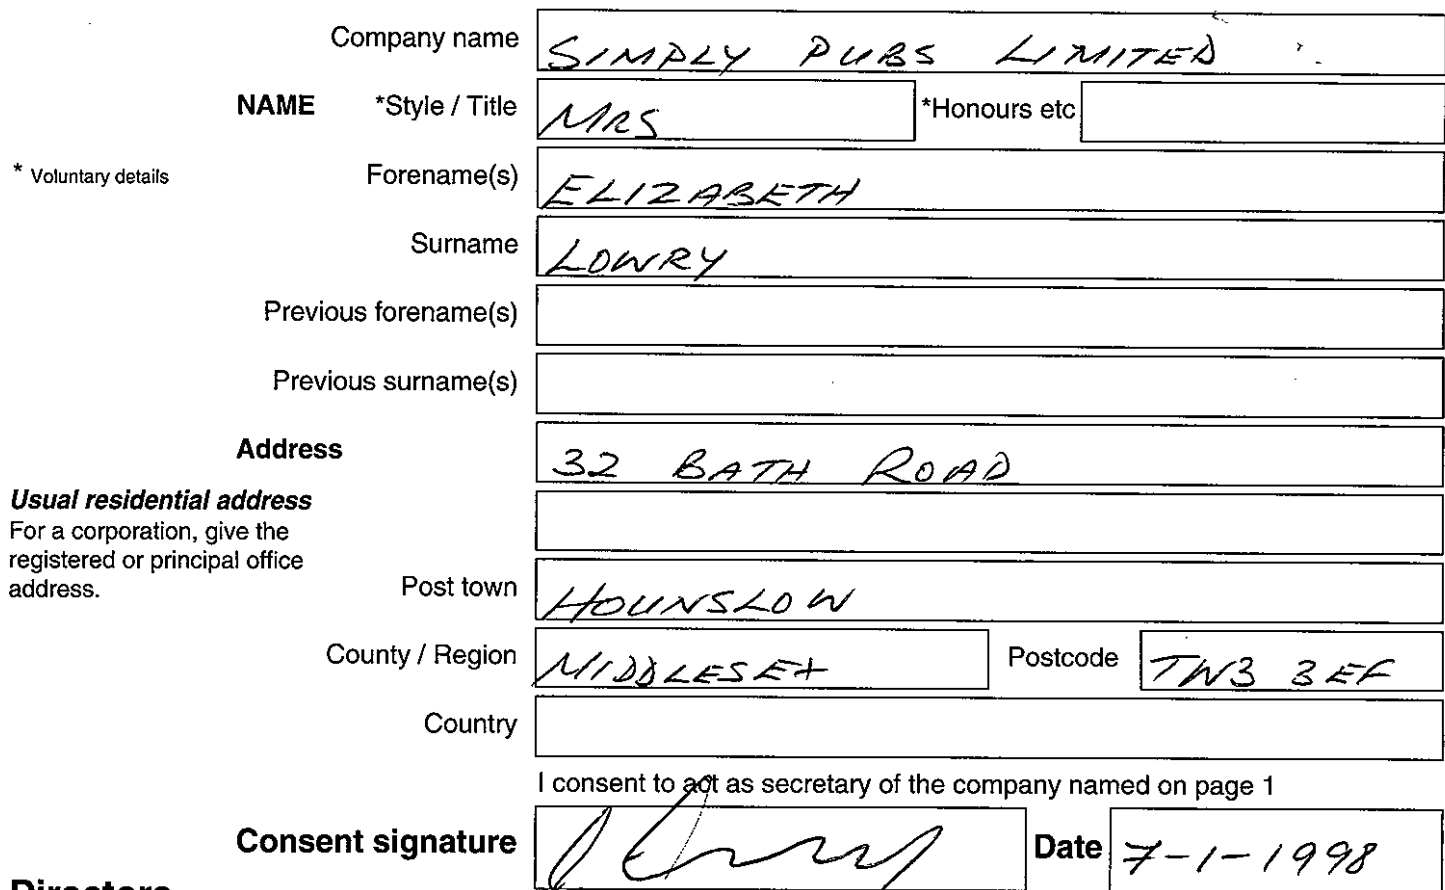 Company name SIMPLY PUBS LIMITED
NAME *Style / Title MRS *Honours etc
* Voluntary details Forename(s) ELIZABETH
Surname LOWRY
Previous forename(s)
Previous surname(s)
Address 32 BATH ROAD
Usual residential address
For a corporation, give the
registered or principal office
address.
Post town HOUNSLOW
County / Region MIDDLESEX Postcode TW3 3EF
Country
I consent to act as secretary of the company named on page 1
Consent signature Date 7-1-1998
Directors